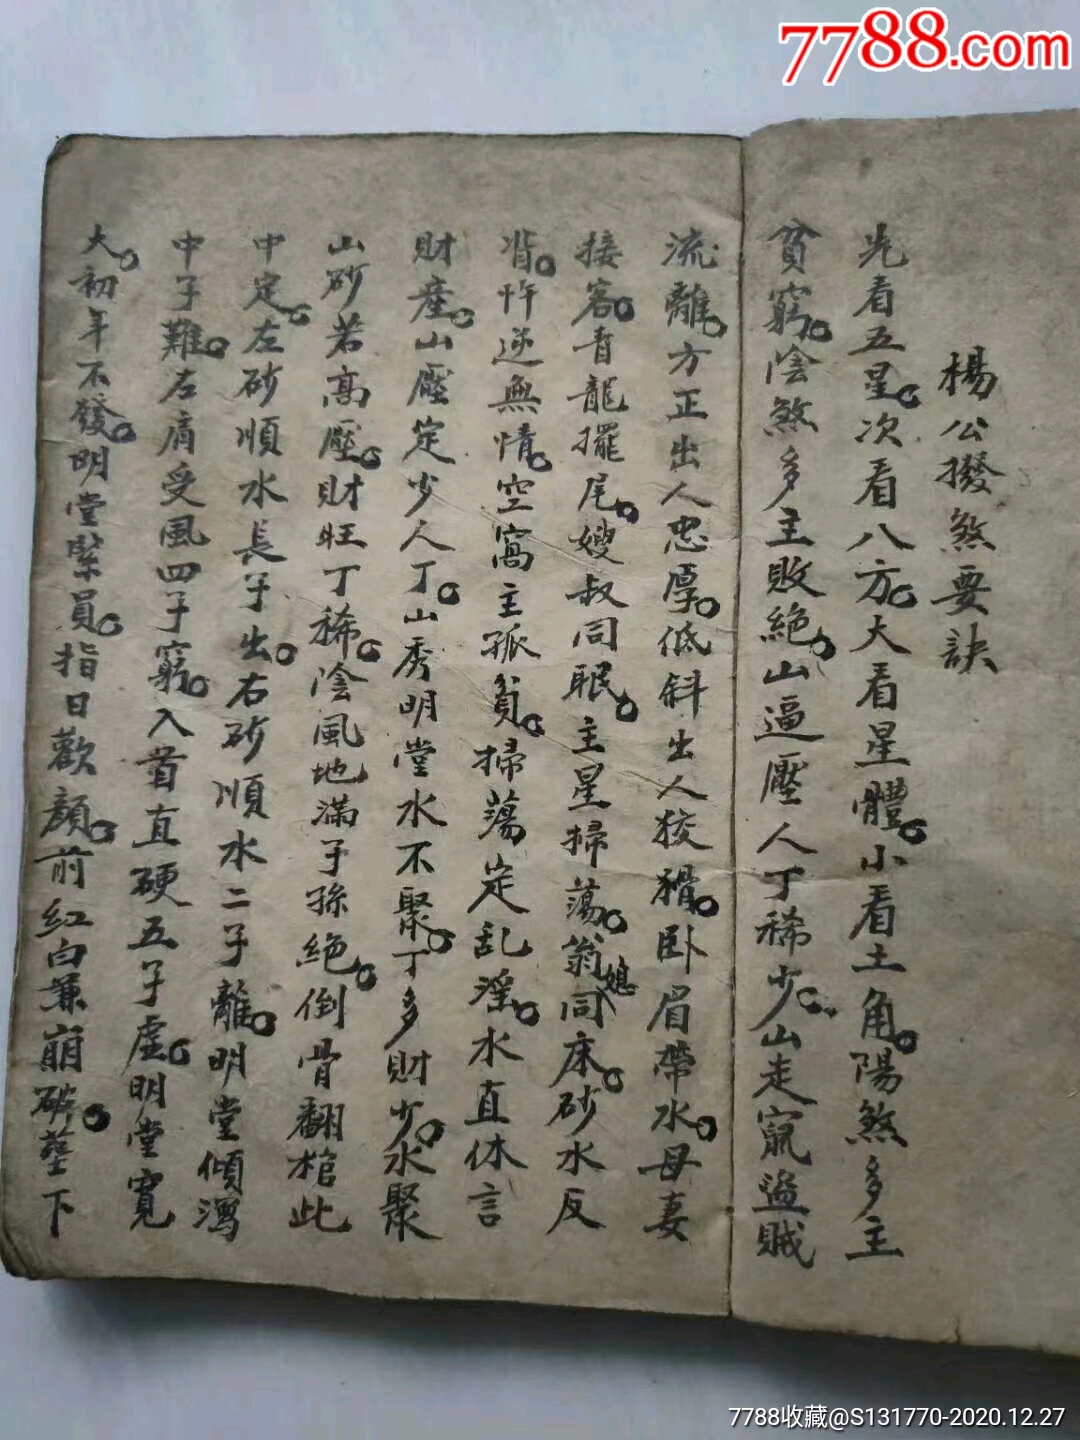 7788.com
楊公撥煞要訣
先看五星。次看八方。大看星體。小看土角。陽煞多主
貧窮。陰煞多主敗絕。山逼壓人丁稀少。山走竄盜賊
流離。方正出人忠厚。低斜出人狡猾。卧眉帶水。母妻
接客。青龍擺尾。嫂叔同眠。主星掃蕩。翁媳同床。砂水反
背。忤逆無情。空窩主孤貧。掃蕩定乱淫。水直休言
財產。山壓定少人丁。山秀明堂水不聚。丁多財少。水聚
山砂若高壓。財旺丁稀。陰風地滿子孫絕。倒骨翻棺此
中定。左砂順水長子出。右砂順水二子離。明堂傾瀉
中子難。左肩受風四子窮。入首直硬五子虛。明堂寬
大。初年不發。明堂緊員。指日歡顏。前紅白兼崩破。塋下
7788收藏@S131770-2020.12.27